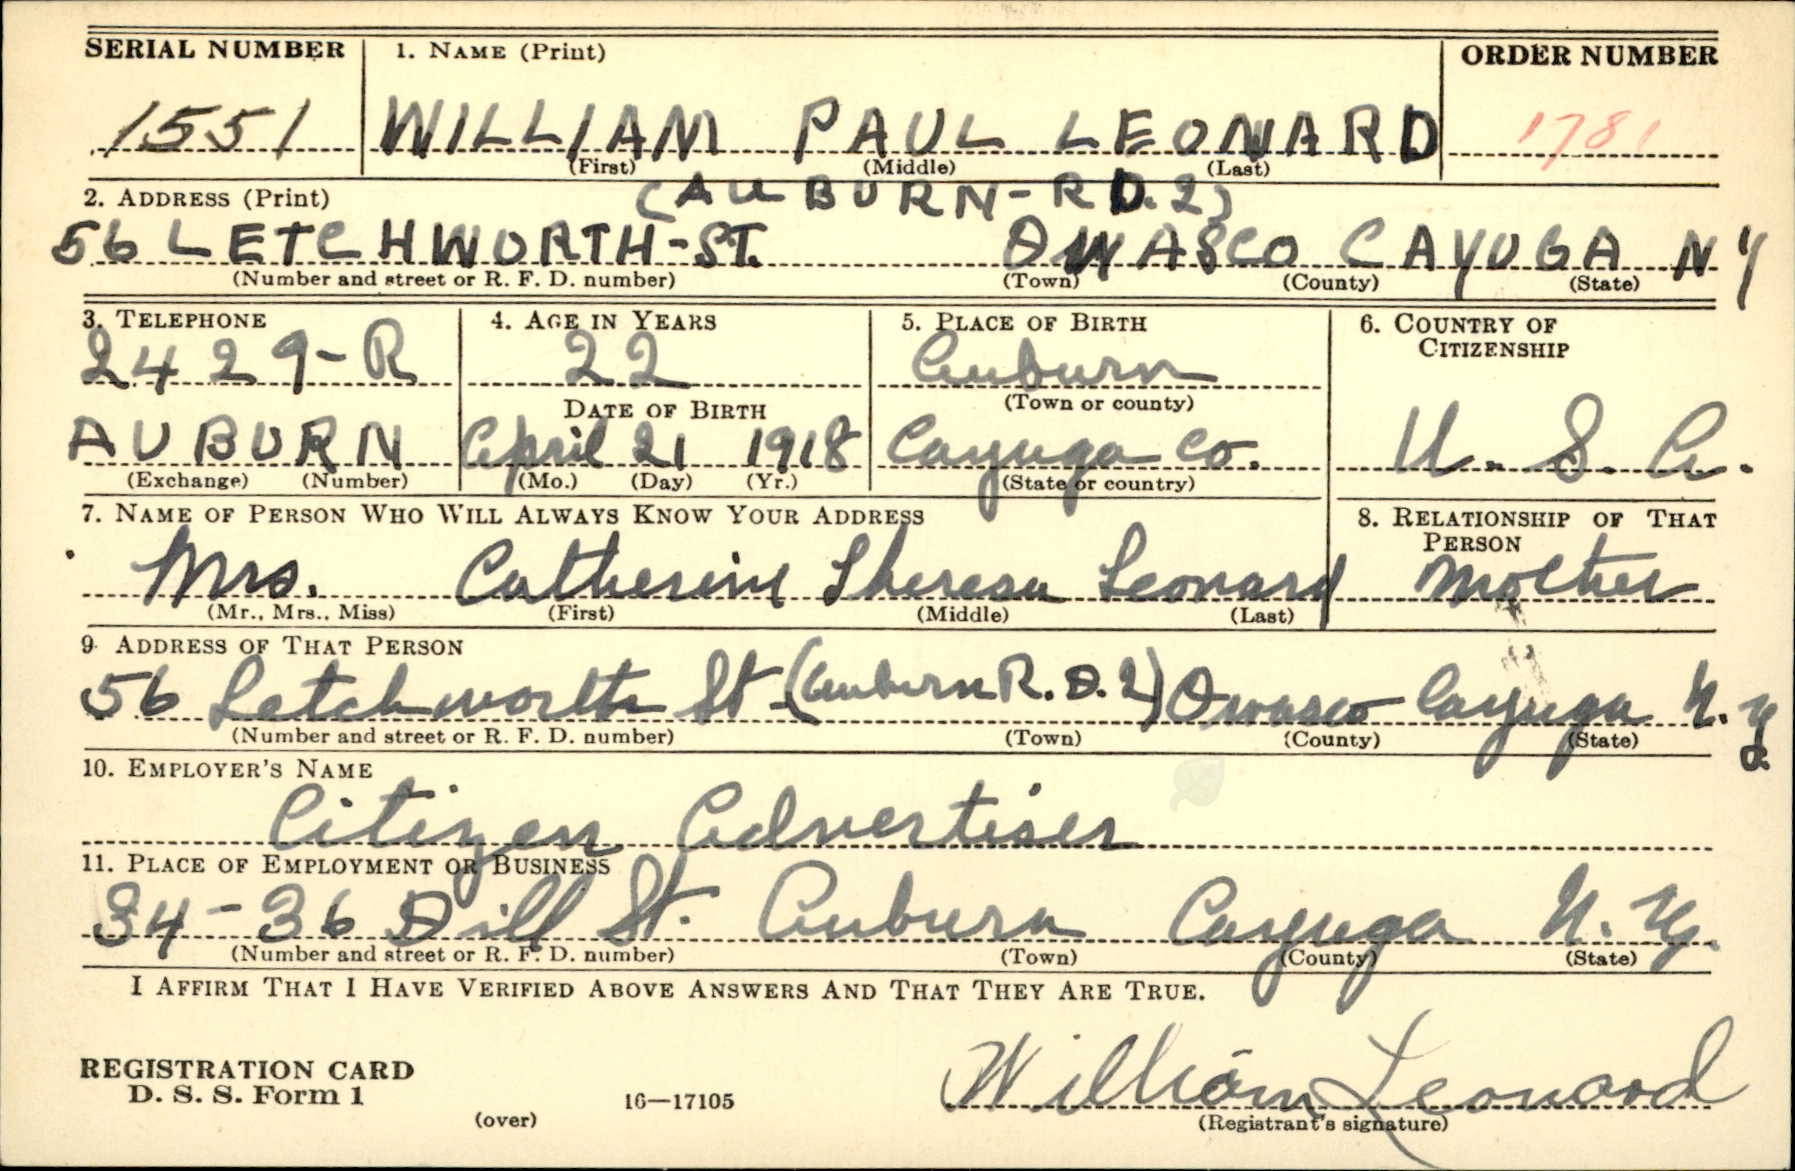 SERIAL NUMBER 1. NAME (Print) ORDER NUMBER
1551 WILLIAM PAUL LEONARD 1781
(First) (Middle) (Last)
2. ADDRESS (Print) (AUBURN-R D. 2)
56 LETCHWORTH-ST. OWASCO CAYUGA N Y
(Number and street or R. F. D. number) (Town) (County) (State)
3. TELEPHONE 4. AGE IN YEARS 5. PLACE OF BIRTH 6. COUNTRY OF CITIZENSHIP
2429-R 22 Auburn
DATE OF BIRTH (Town or county)
AUBURN April 21 1918 Cayuga Co. U. S. A.
(Exchange) (Number) (Mo.) (Day) (Yr.) (State or country)
7. NAME OF PERSON WHO WILL ALWAYS KNOW YOUR ADDRESS 8. RELATIONSHIP OF THAT PERSON
Mrs. Catherine Theresa Leonard Mother
(Mr., Mrs., Miss) (First) (Middle) (Last)
9. ADDRESS OF THAT PERSON
56 Letchworth St. (Auburn R. D. 2) Owasco Cayuga N. Y.
(Number and street or R. F. D. number) (Town) (County) (State)
10. EMPLOYER'S NAME
Citizen Advertiser
11. PLACE OF EMPLOYMENT OR BUSINESS
34-36 Dill St. Auburn Cayuga N. Y.
(Number and street or R. F. D. number) (Town) (County) (State)
I AFFIRM THAT I HAVE VERIFIED ABOVE ANSWERS AND THAT THEY ARE TRUE.
REGISTRATION CARD
D. S. S. Form 1 16—17105 William Leonard
(over) (Registrant's signature)